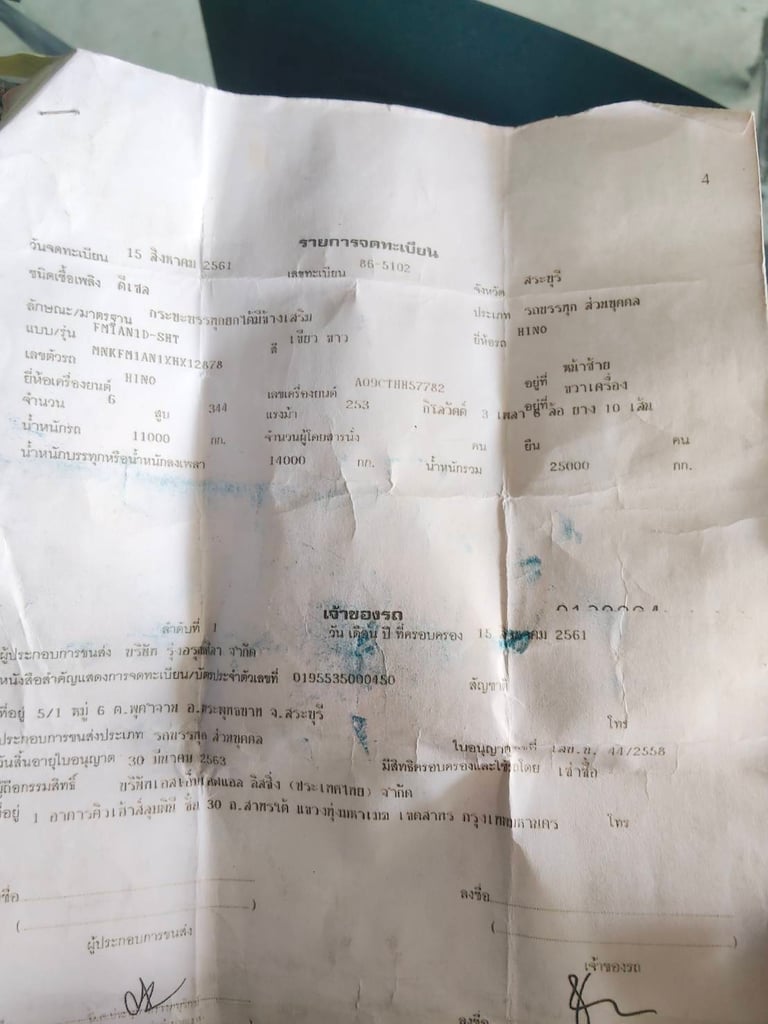 4
รายการจดทะเบียน
วันจดทะเบียน 15 สิงหาคม 2561 เลขทะเบียน 86-5102 จังหวัด สระบุรี
ชนิดเชื้อเพลิง ดีเซล
ลักษณะ/มาตรฐาน กระบะบรรทุกยกได้มีข้างเสริม ประเภท รถบรรทุก ส่วนบุคคล
แบบ/รุ่น FM1AN1D-SHT สี เขียว ขาว ยี่ห้อรถ HINO
เลขตัวรถ MNKFM1AN1XHX12878 อยู่ที่ หน้าซ้าย
ยี่ห้อเครื่องยนต์ HINO เลขเครื่องยนต์ A09CTHH57782 อยู่ที่ ขวาเครื่อง
จำนวน 6 สูบ 344 แรงม้า 253 กิโลวัตต์ 3 เพลา 6 ล้อ ยาง 10 เส้น
น้ำหนักรถ 11000 กก. จำนวนผู้โดยสารนั่ง คน ยืน คน
น้ำหนักบรรทุกหรือน้ำหนักลงเพลา 14000 กก. น้ำหนักรวม 25000 กก.
เจ้าของรถ
ลำดับที่ 1 วัน เดือน ปี ที่ครอบครอง 15 สิงหาคม 2561
ผู้ประกอบการขนส่ง บริษัท จำกัด
หนังสือสำคัญแสดงการจดทะเบียน/บัตรประจำตัวเลขที่ 0195535000450 สัญชาติ
ที่อยู่ 5/1 หมู่ 6 ต.พุคำจาน อ.พระพุทธบาท จ.สระบุรี โทร
ประกอบการขนส่งประเภท รถบรรทุก ส่วนบุคคล ใบอนุญาตเลขที่ 44/2558
วันสิ้นอายุใบอนุญาต 30 มีนาคม 2563 มีสิทธิครอบครองและใช้รถโดย เช่าซื้อ
ผู้ถือกรรมสิทธิ์ ลิสซิ่ง (ประเทศไทย) จำกัด
ที่อยู่ 1 อาคารคิวเฮ้าส์ลุมพินี ชั้น 30 ถ.สาทรใต้ แขวงทุ่งมหาเมฆ เขตสาทร กรุงเทพมหานคร โทร
ลงชื่อ ลงชื่อ
( ) ( )
ผู้ประกอบการขนส่ง เจ้าของรถ
ลงชื่อ